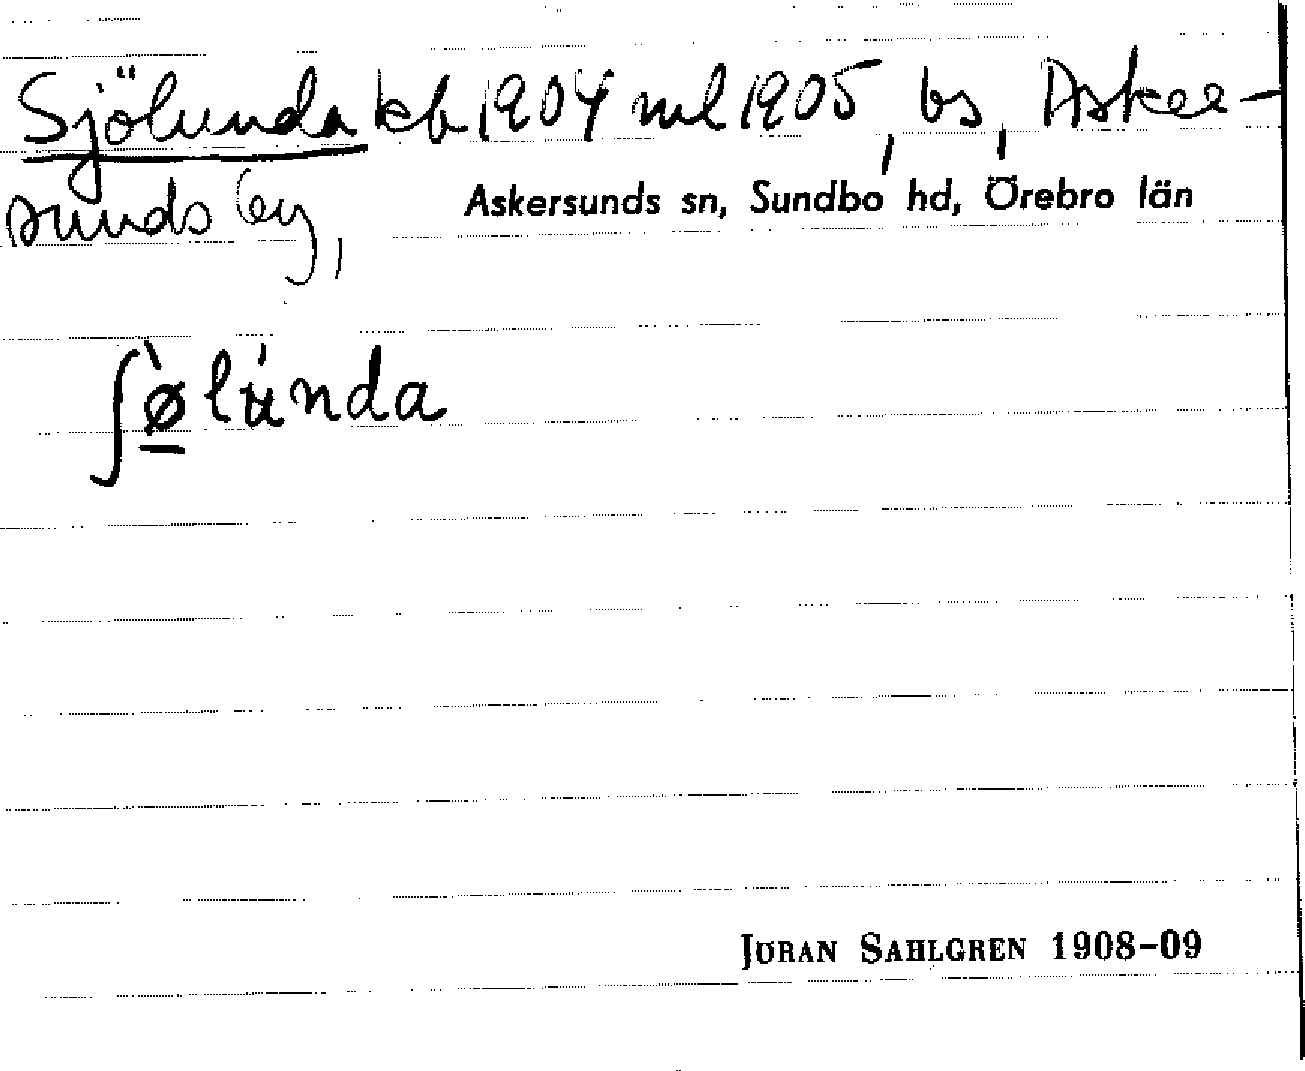 Sjölunda kb 1904 ml 1905, bs, Asker-
sunds by, Askersunds sn, Sundbo hd, Örebro län
ʃø̀lúnda
JÖRAN SAHLGREN 1908-09